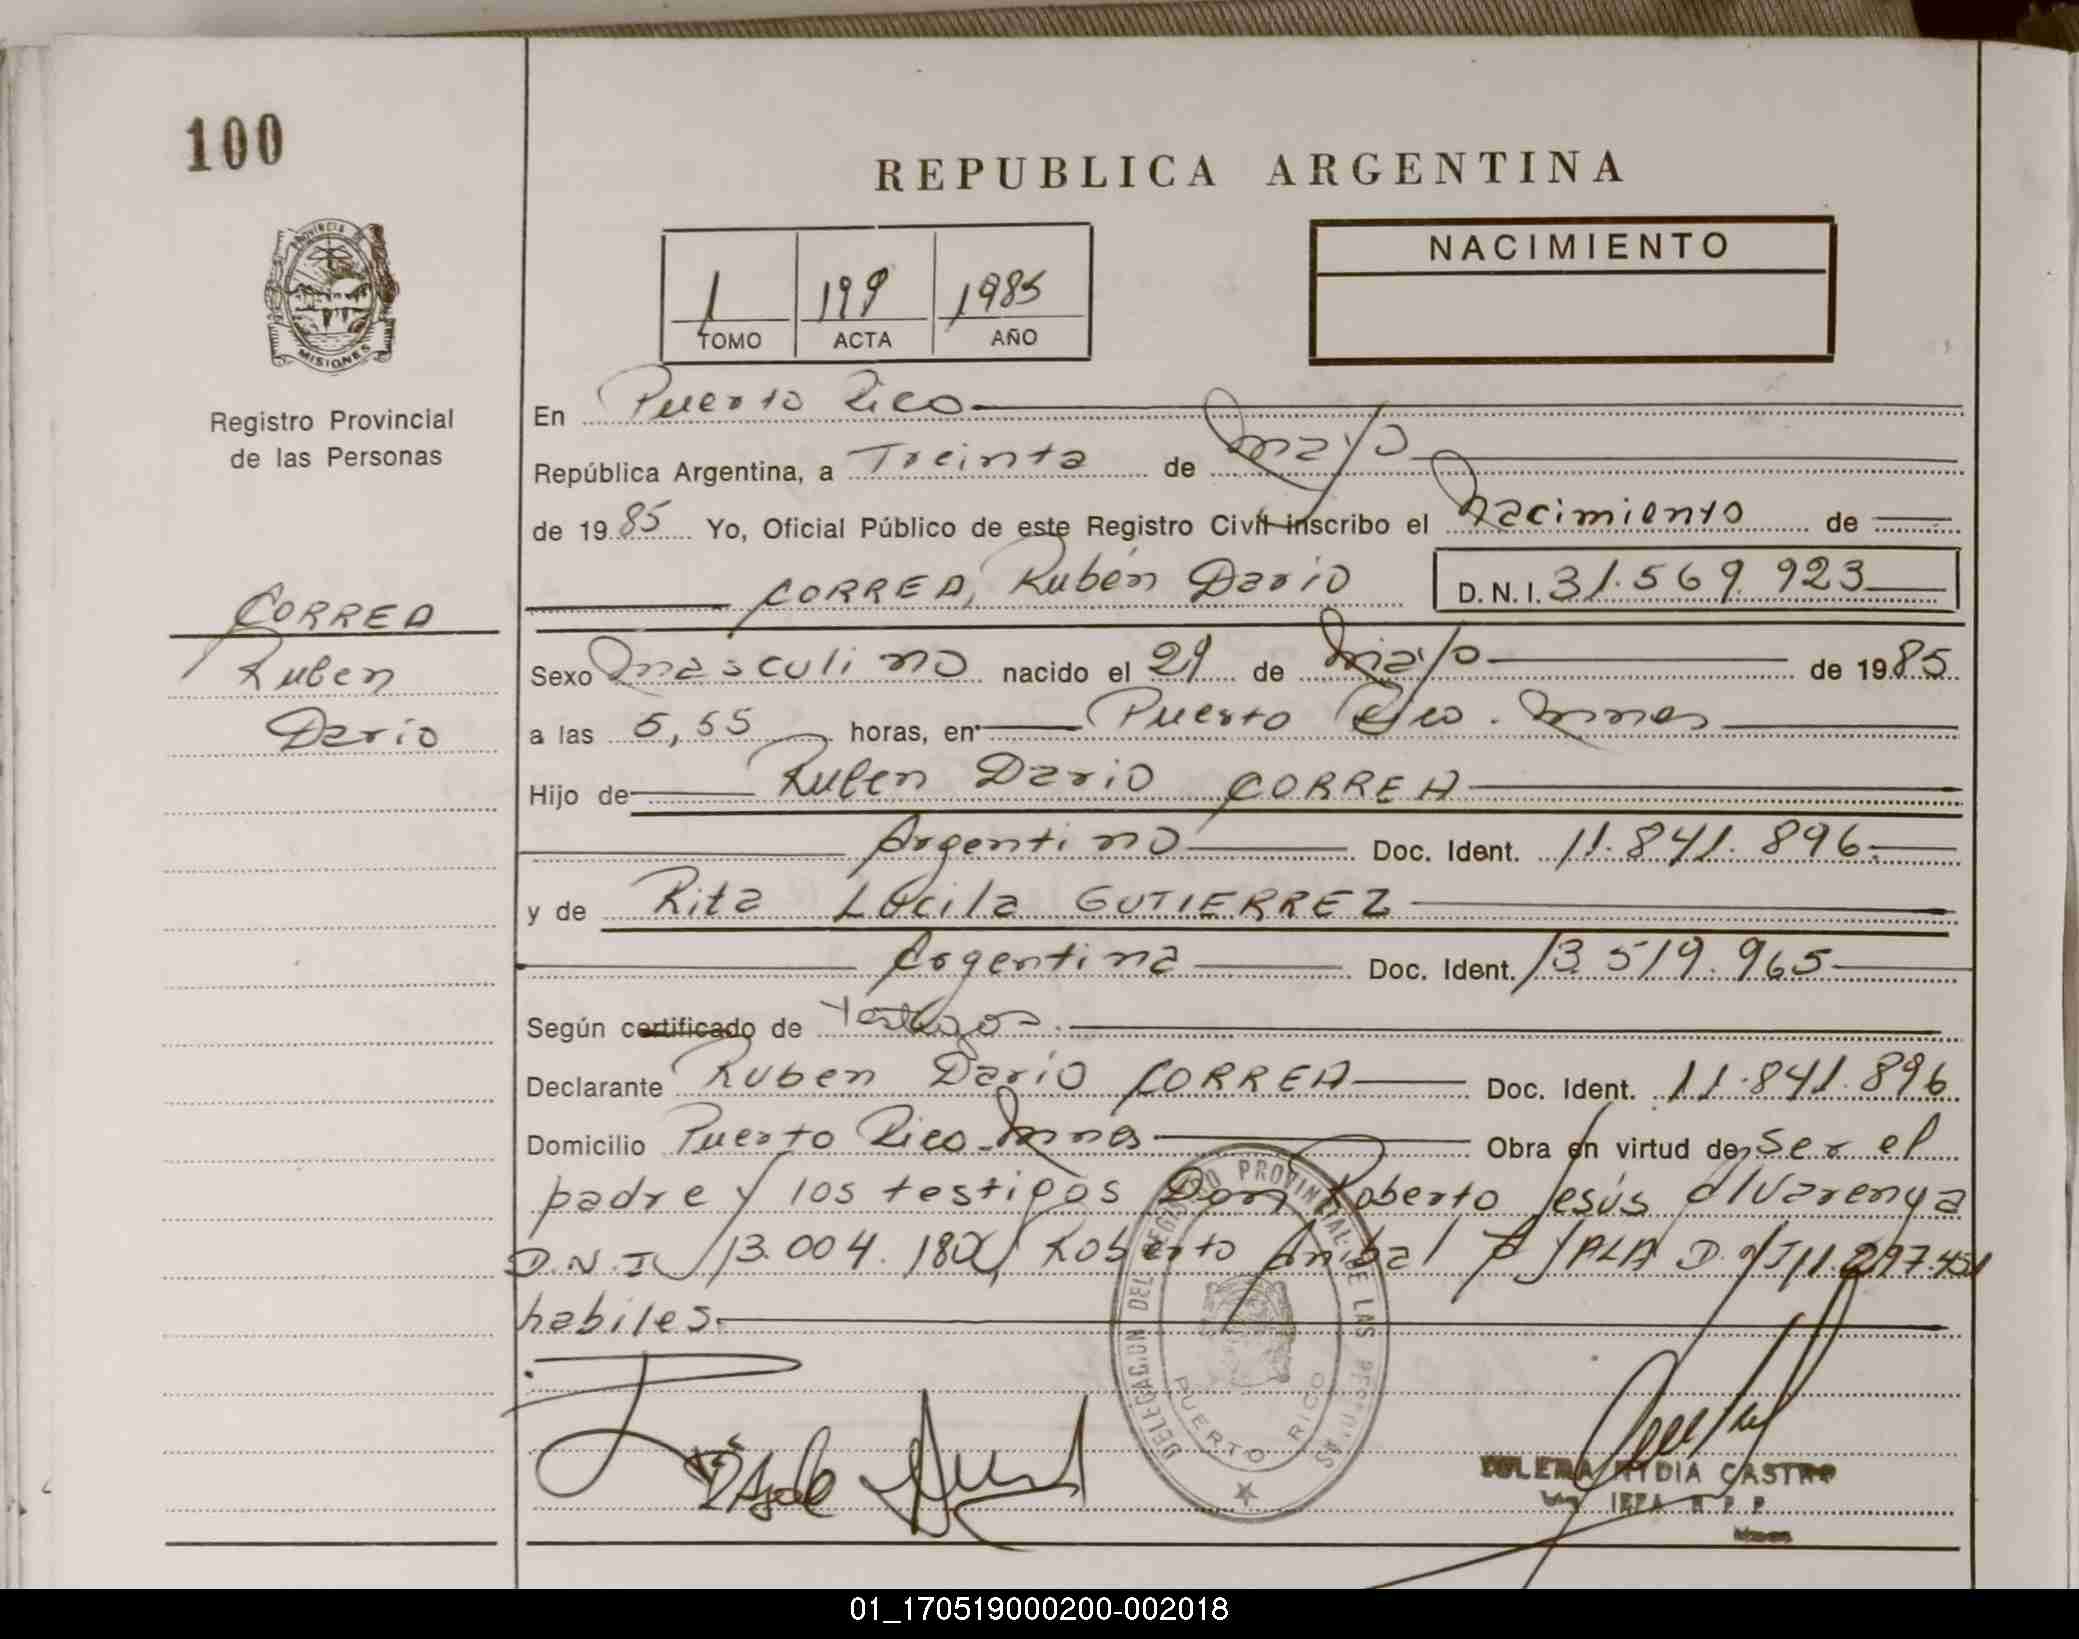 100
REPUBLICA ARGENTINA
PROVINCIA DE
MISIONES
Registro Provincial
de las Personas
1 199 1985
TOMO ACTA AÑO
NACIMIENTO
CORREA
Ruben
Dario
En Puerto Rico
República Argentina, a Treinta de mayo
de 1985 Yo, Oficial Público de este Registro Civil inscribo el nacimiento de
CORREA, Rubén Dario D. N. I. 31.569.923
Sexo masculino nacido el 29 de mayo de 1985
a las 5,55 horas, en Puerto Rico. Mnes
Hijo de Ruben Dario CORREA
Argentino Doc. Ident. 11.841.896.
y de Rita Lucila GUTIERREZ
Argentina Doc. Ident. 13.519.965
Según certificado de testigos.
Declarante Ruben Dario CORREA Doc. Ident. 11.841.896
Domicilio Puerto Rico. Mnes Obra en virtud de ser el
padre y los testigos Don Roberto Jesús Alvarenga
D.N.I. 13.004.180, Roberto Anibal AYALA D.N.I 11.297.451
habiles.
DELEGACION DEL REGISTRO PROVINCIAL DE LAS PERSONAS
PUERTO RICO
NYDIA CASTRO
01_170519000200-002018